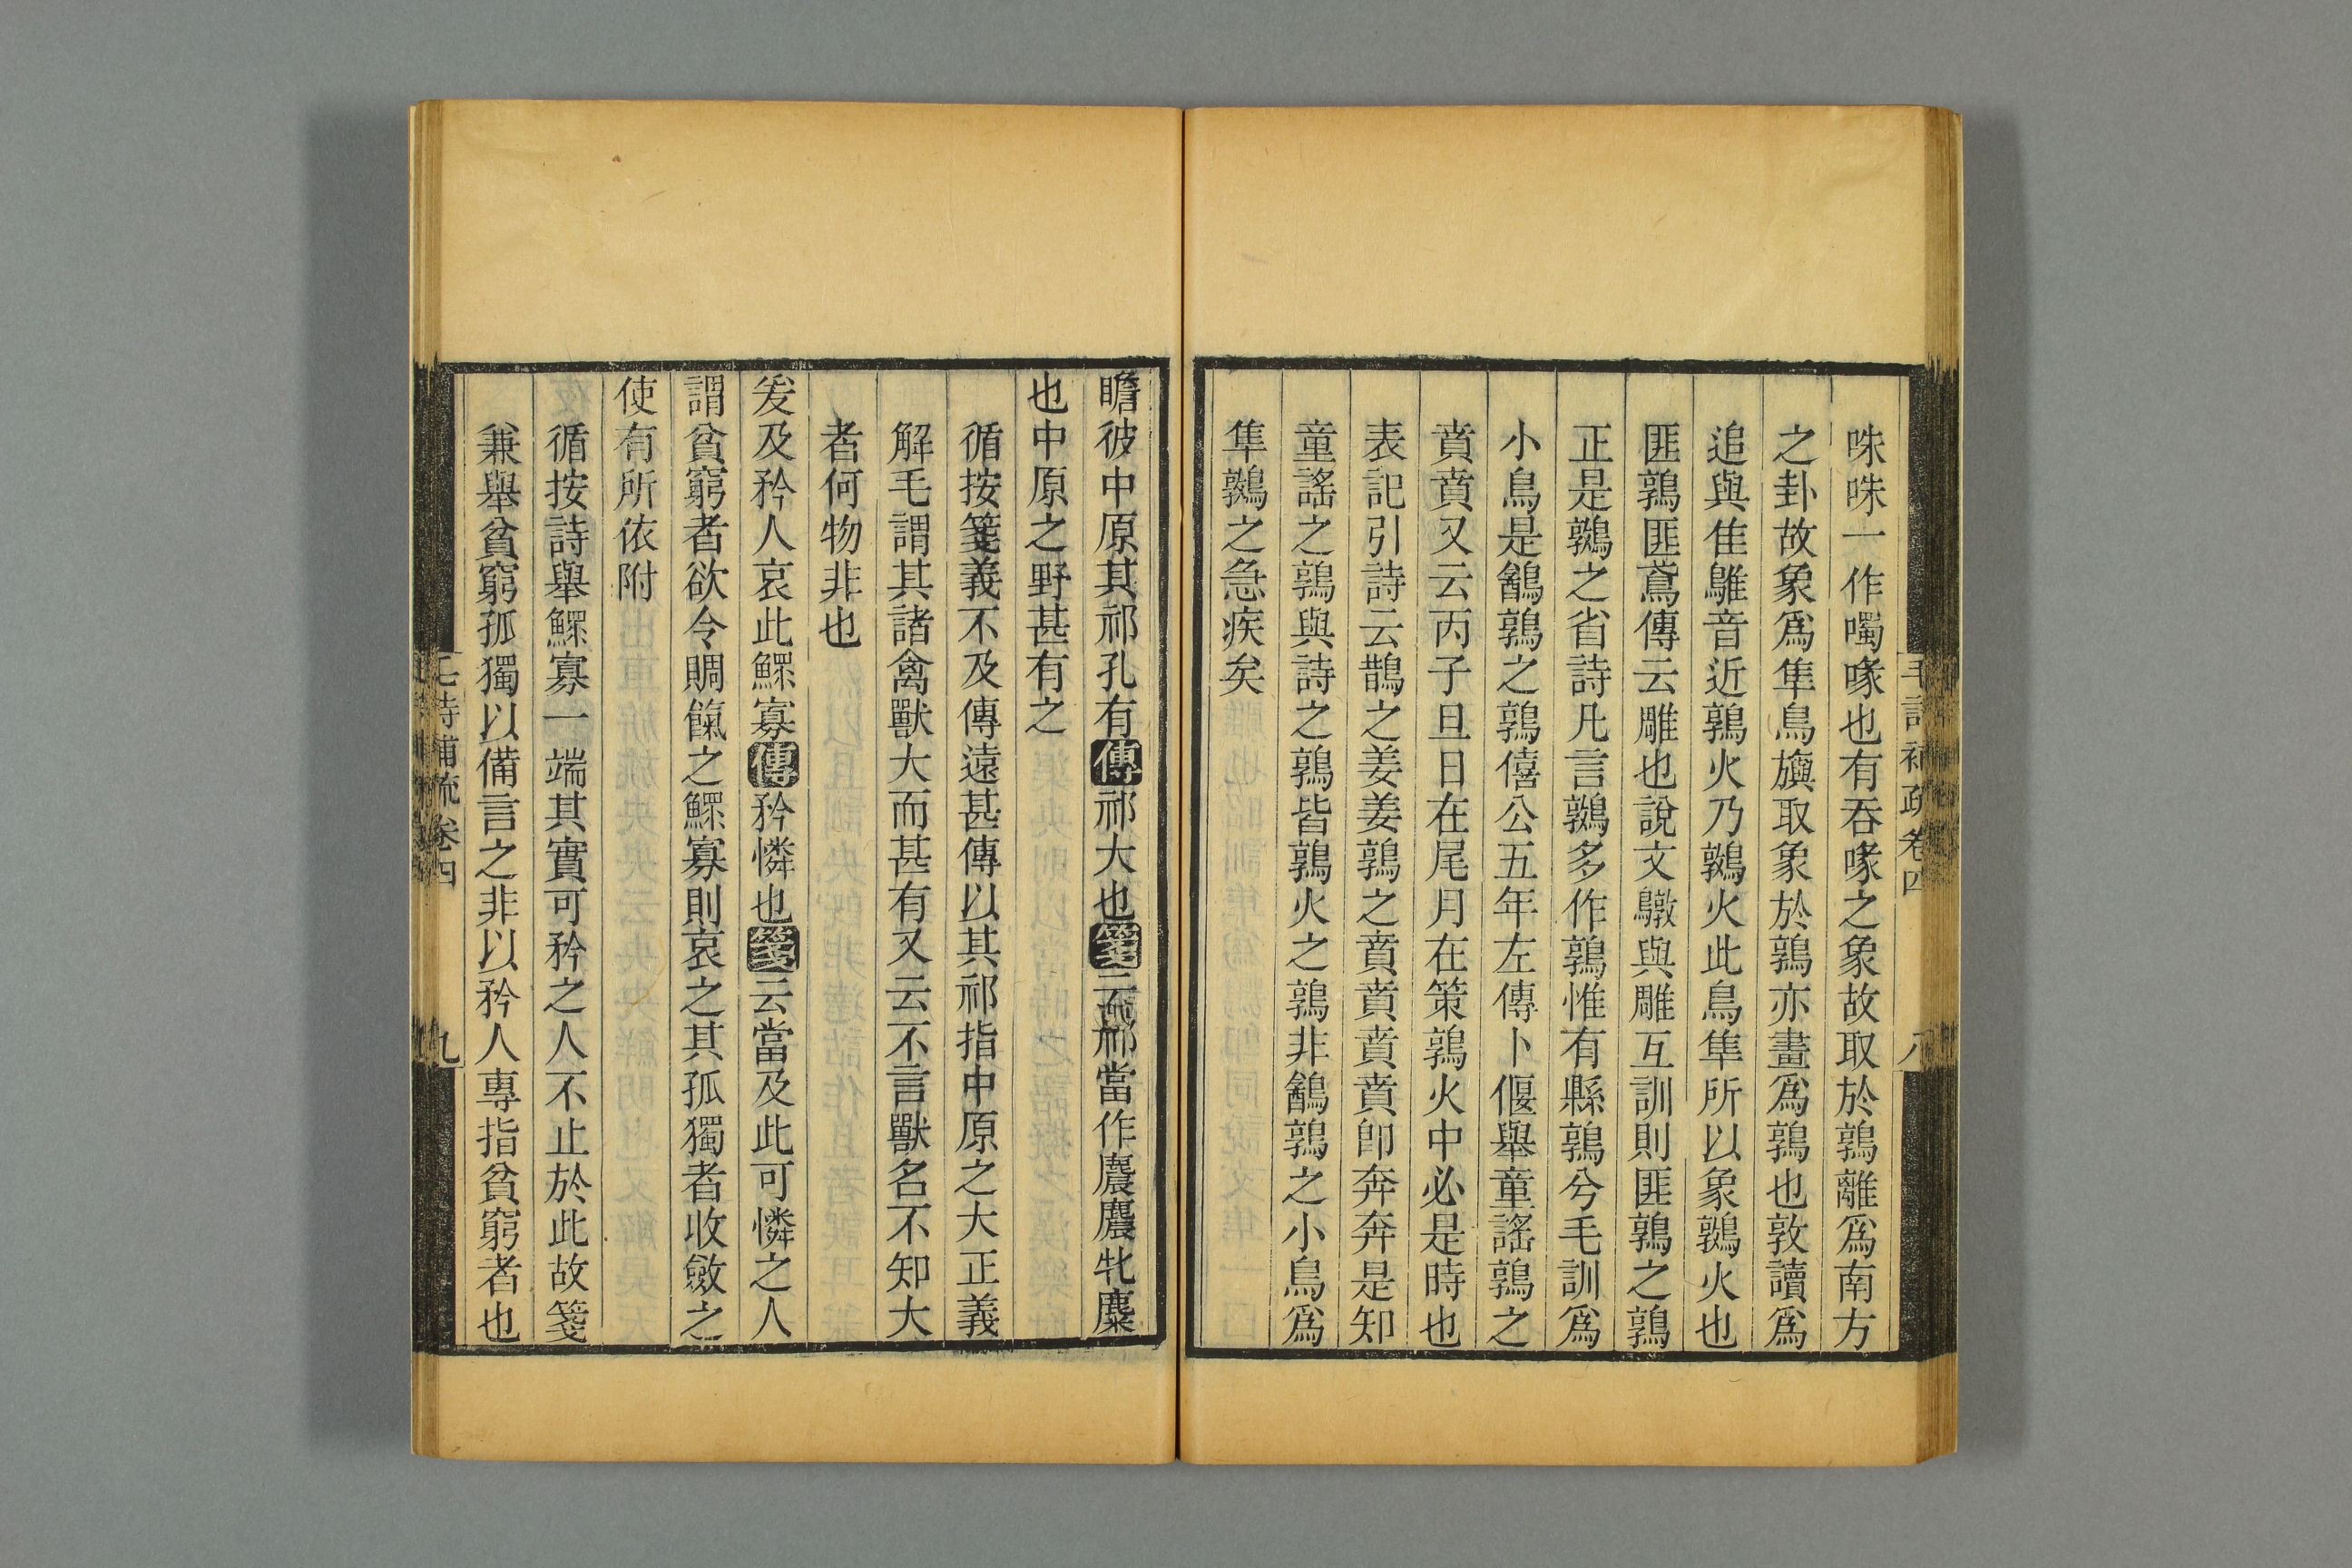 咮咮一作噣喙也有吞喙之象故取於鶉離爲南方
之卦故象爲隼鳥旟取象於鶉亦畫爲鶉也敦讀爲
追與隹鵻音近鶉火乃鷻火此鳥隼所以象鷻火也
匪鶉匪鳶傳云雕也說文䳪與雕互訓則匪鶉之鶉
正是鷻之省詩凡言鷻多作鶉惟有縣鶉兮毛訓爲
小鳥是䳺鶉之鶉僖公五年左傳卜偃舉童謠鶉之
賁賁又云丙子旦日在尾月在策鶉火中必是時也
表記引詩云鵲之姜姜鶉之賁賁賁賁卽奔奔是知
童謠之鶉與詩之鶉皆鶉火之鶉非䳺鶉之小鳥爲
隼鷻之急疾矣
毛詩補疏卷四
八
瞻彼中原其祁孔有傳祁大也箋云祁當作麎麎牝麋
也中原之野甚有之
循按箋義不及傳遠甚傳以其祁指中原之大正義
解毛謂其諸禽獸大而甚有又云不言獸名不知大
者何物非也
爰及矜人哀此鰥寡傳矜憐也箋云當及此可憐之人
謂貧窮者欲令賙餼之鰥寡則哀之其孤獨者收斂之
使有所依附
循按詩舉鰥寡一端其實可矜之人不止於此故箋
兼舉貧窮孤獨以備言之非以矜人專指貧窮者也
毛詩補疏卷四
九